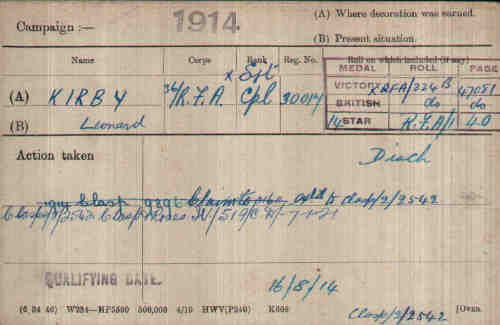 1914
(A) Where decoration was earned.
Campaign :—
(B) Present situation.
Name Corps Rank Reg. No. Roll on which included (if any)
MEDAL ROLL PAGE
x Sjt
VICTORY RFA/224 B 47081
(A) KIRBY 36/R.F.A. Cpl 30017
BRITISH do do
(B) Leonard
14 STAR R.F.A/1 40
Action taken
Disch
1914 Clasp 9396 Clasp/2/2542
Clasp/2/2542 Clasp & Roses IV/519/C d/- 7-1-21
QUALIFYING DATE.
16/8/14
(6 34 46) W234—HP5590 500,000 4/19 HWV(P240) K608 [OVER.
Clasp/2/2542